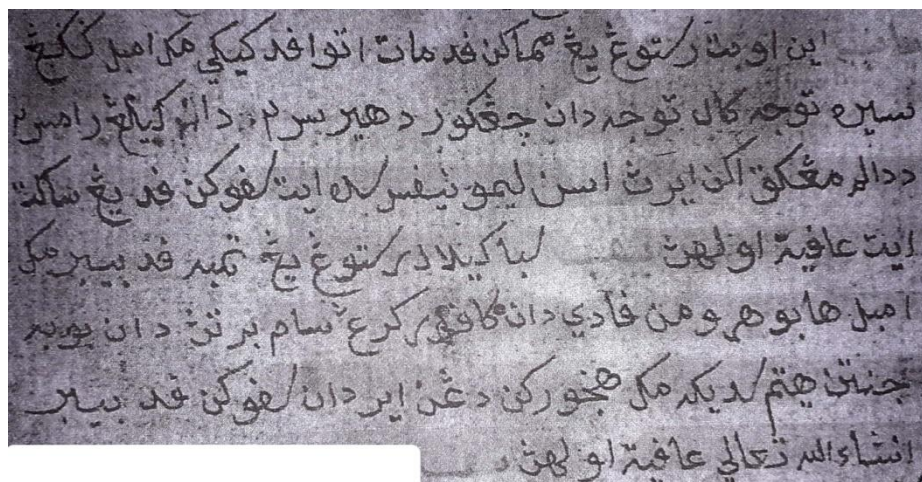 اين اوبت رستوڠ يڠ مماكن فد مات اتوا فد كيكي مك امبل
سيره توجه كالي توجه دان جڠكور د هيريس٢ دان
ددالم مڠكق اكن ايرڽ اسن ليمو نيفس ايت لفوكن فد يڠ ساكت
ايت عافية اولهڽ لباكي لاڬي رستوڠ يڠ تمبه فد بيبير مك
امبل هابو هرومن فادي دان كافور كرڠ سام برتڽ دان بوبه
جنتن هيتم سديكة مك هنچوركن دڠن اير دان لفوكن فد بيبير
انشاءالله تعالى عافية اولهڽ